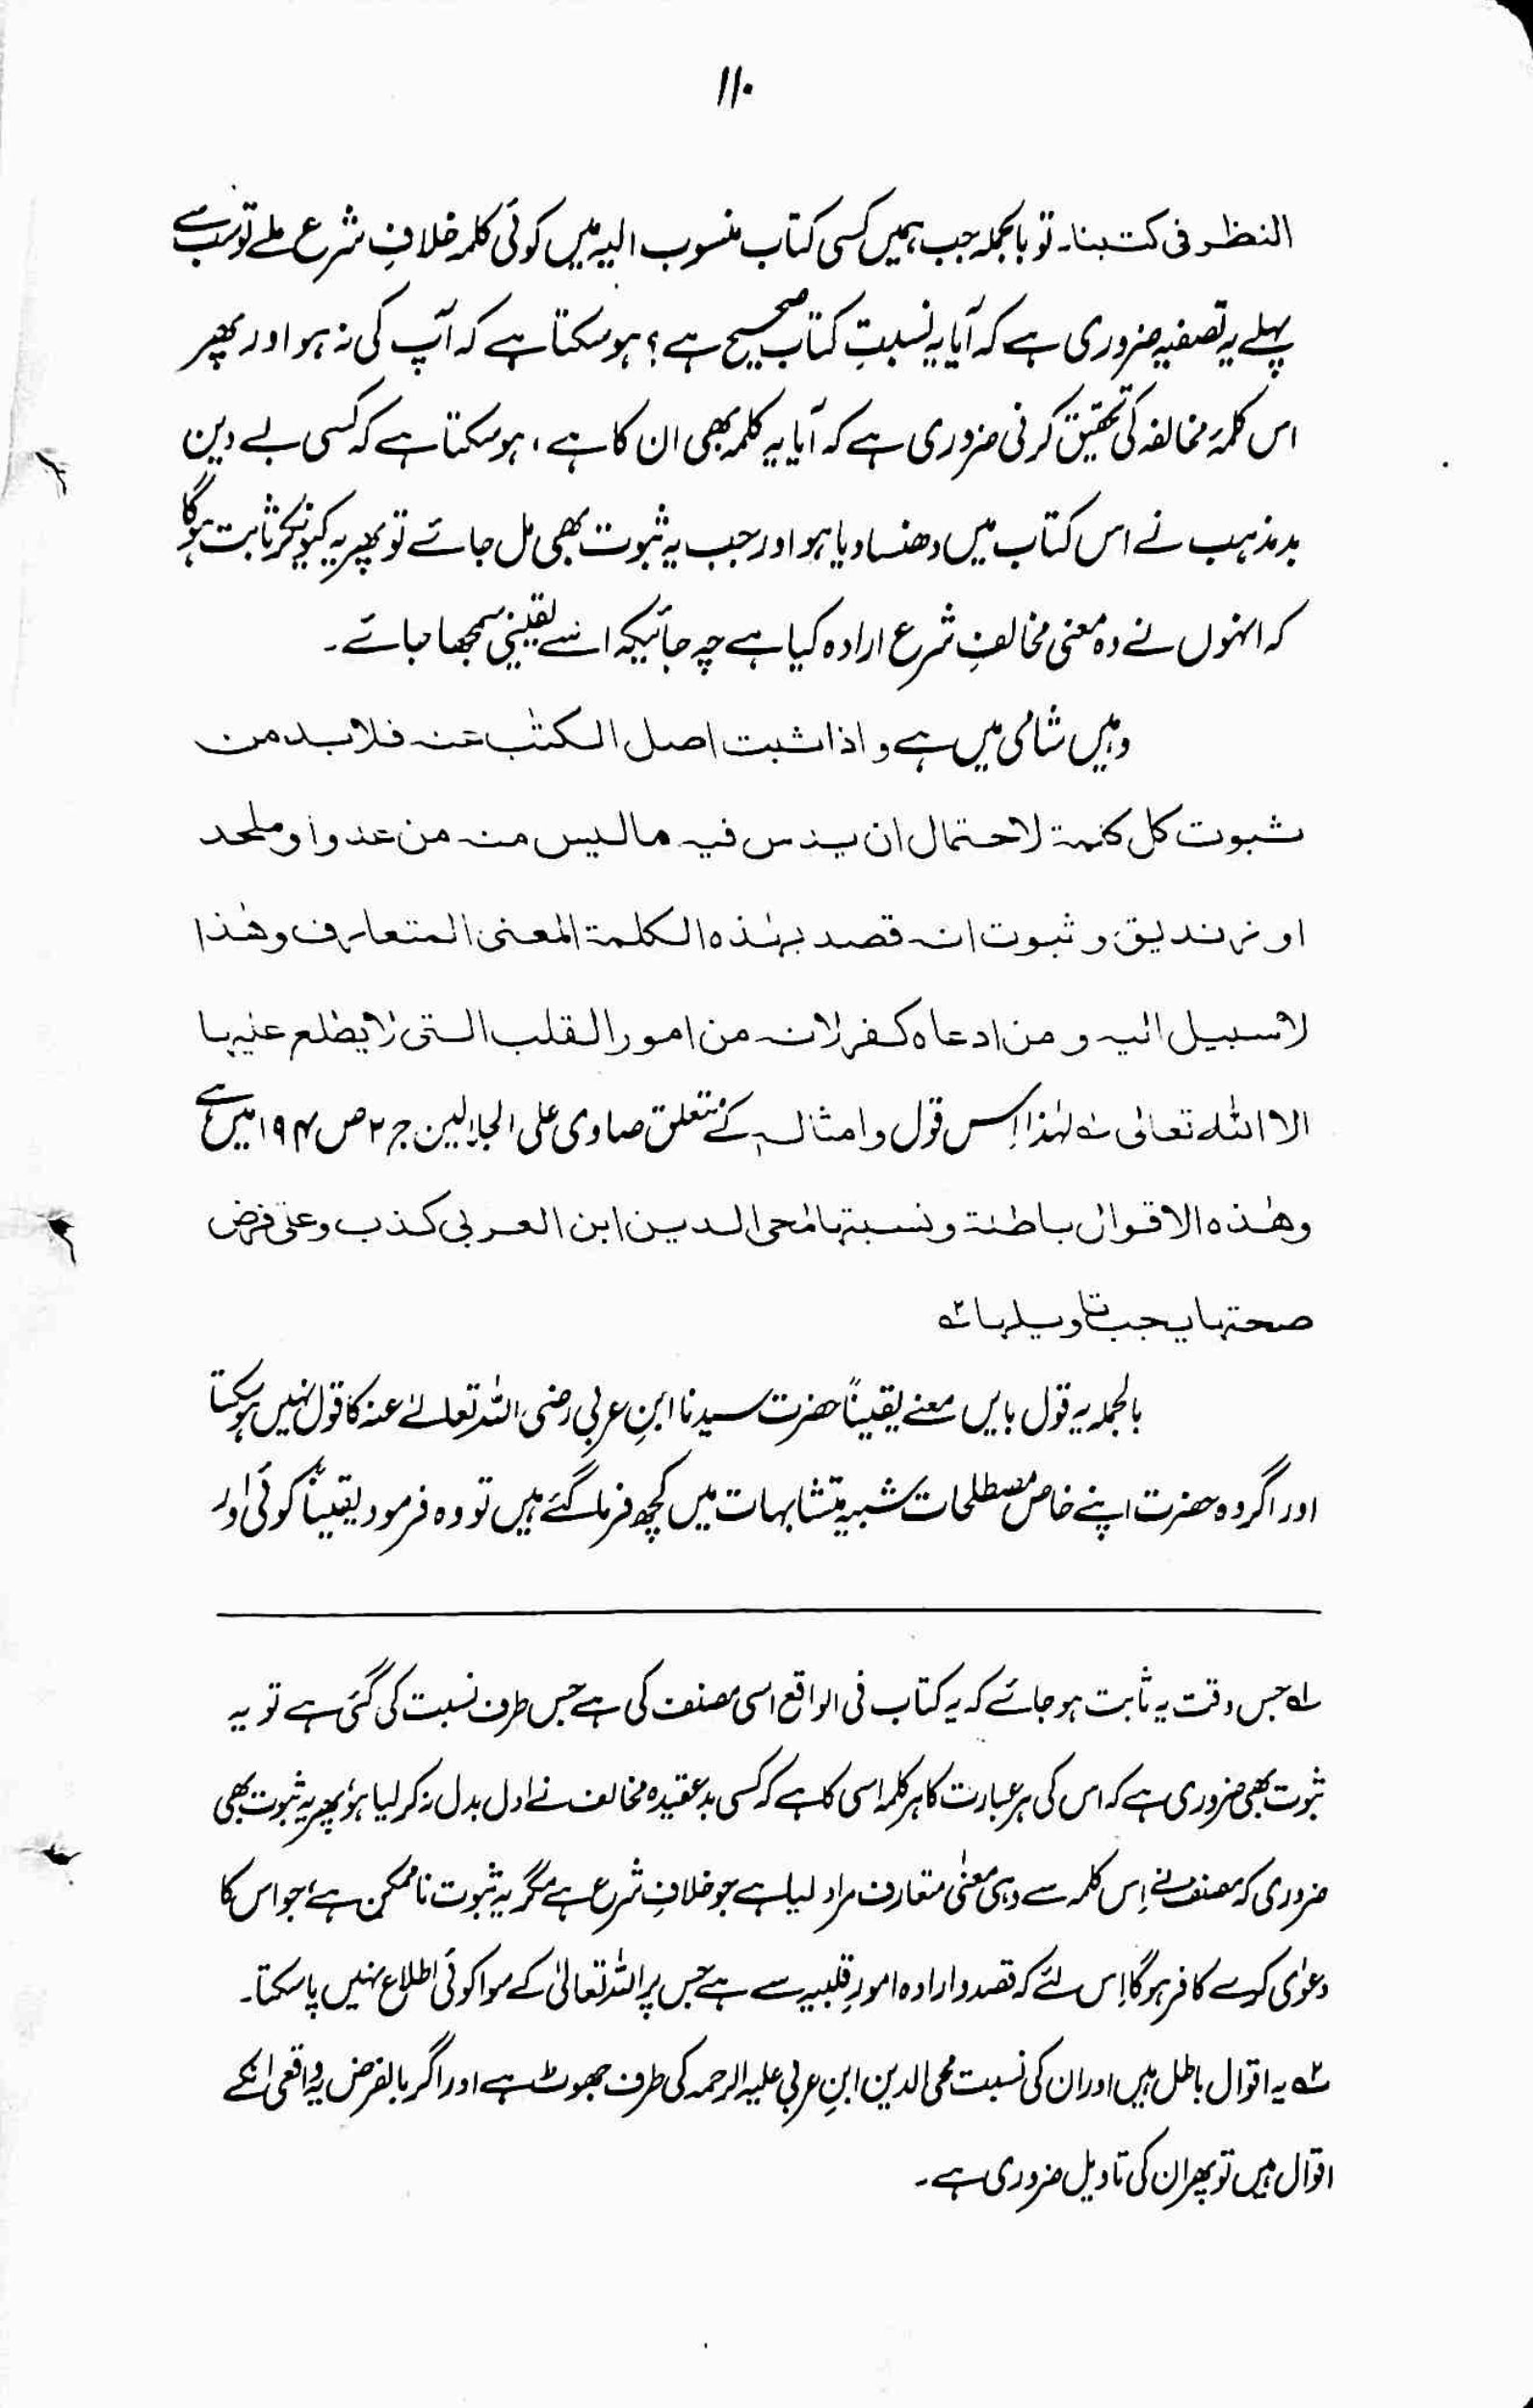 ۱۱۰
النظر فی کتبنا۔ تو بالجملہ جب ہمیں کسی کتاب منسوب الیہ میں کوئی کلمہ خلافِ شرع ملے تو سب سے
پہلے یہ تصفیہ ضروری ہے کہ آیا یہ نسبتِ کتاب صحیح ہے؟ ہو سکتا ہے کہ آپ کی نہ ہو اور پھر
اس کلمۂ مخالفہ کی تحقیق کرنی ضروری ہے کہ آیا یہ کلمہ بھی ان کا ہے، ہو سکتا ہے کہ کسی بے دین
بدمذہب نے اس کتاب میں دھنسا دیا ہو اور جب یہ ثبوت بھی مل جائے تو پھر یہ کیونکر ثابت ہوگا
کہ انہوں نے وہ معنی مخالفِ شرع ارادہ کیا ہے چہ جائیکہ اسے یقینی سمجھا جائے۔
وہیں شامی میں ہے و اذا ثبت اصل الکتٰب عنہ فلا بد من
ثبوت کل کلمۃ لاحتمال ان یدس فیہ مالیس منہ من عدو او ملحد
او زندیق و ثبوت انہ قصد بہٰذہ الکلمۃ المعنی المتعارف وھٰذا
لاسبیل الیہ و من ادعاہ کفر لانہ من امور القلب التی لایطلع علیہا
الا اللہ تعالیٰ ۱ لہٰذا اِس قول و امثالہ کے متعلق صاوی علی الجلالین ج ۲ ص ۱۹۴ میں ہے
وھٰذہ الاقوال باطلۃ و نسبتہا لمحی الدین ابن العربی کذب و علی فرض
صحتہا یجب تاویلہا ۲
بالجملہ یہ قول بایں معنے یقیناً حضرت سیدنا ابنِ عربی رضی اللہ تعالےٰ عنہ کا قول نہیں ہو سکتا
اور اگر وہ حضرت اپنے خاص مصطلحات شبیہِ متشابہات میں کچھ فرما گئے ہیں تو وہ فرمود یقیناً کوئی اور
۱ جس وقت یہ ثابت ہو جائے کہ یہ کتاب فی الواقع اسی مصنف کی ہے جس طرف نسبت کی گئی ہے تو یہ
ثبوت بھی ضروری ہے کہ اس کی ہر عبارت کا ہر کلمہ اسی کا ہے کہ کسی بدعقیدہ مخالف نے ادل بدل نہ کر لیا ہو، پھر یہ ثبوت بھی
ضروری کہ مصنف نے اِس کلمہ سے وہی معنٰی متعارف مراد لیا ہے جو خلافِ شرع ہے مگر یہ ثبوت ناممکن ہے، جو اس کا
دعوٰی کرے کافر ہوگا اِس لئے کہ قصد و ارادہ امورِ قلبیہ سے ہے جس پر اللہ تعالیٰ کے سوا کوئی اطلاع نہیں پا سکتا۔
۲ یہ اقوال باطل ہیں اور ان کی نسبت محی الدین ابنِ عربی علیہ الرحمہ کی طرف جھوٹ ہے اور اگر بالفرض یہ واقعی انکے
اقوال ہیں تو پھر ان کی تاویل ضروری ہے۔